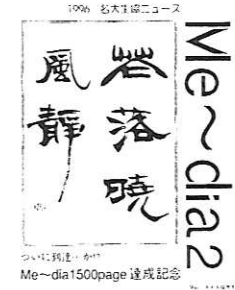 1996 名大生協ニュース
Me～dia2
花落曉
風靜
ついに到達…か!?
Me～dia1500page 達成記念